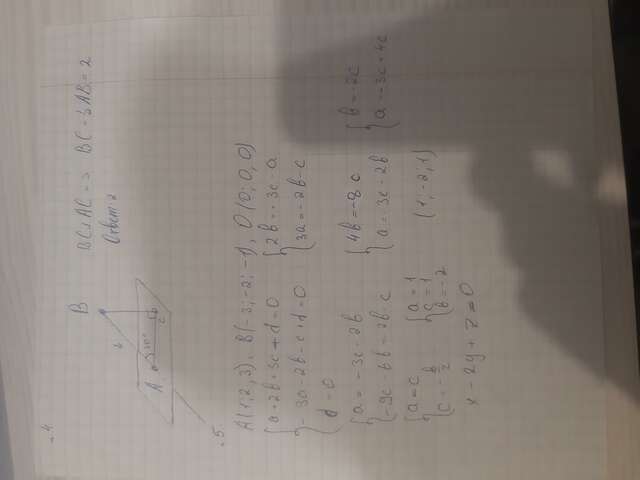 №4
B
4
A
30°
C
BC⊥AC => BC = ½AB = 2
Ответ: 2
№5
A(1; 2; 3), B(-3; -2; -1), O(0; 0; 0)
{a + 2b + 3c + d = 0
{-3a - 2b - c + d = 0
{d = 0
{2b = -3c - a
{3a = -2b - c
{a = -3c - 2b
{-9c - 6b = -2b - c
{4b = -8c
{a = -3c - 2b
{b = -2c
{a = -3c + 4c
{a = c
{c = -b/2
{a = 1
{c = 1
{b = -2
(1; -2; 1)
x - 2y + z = 0